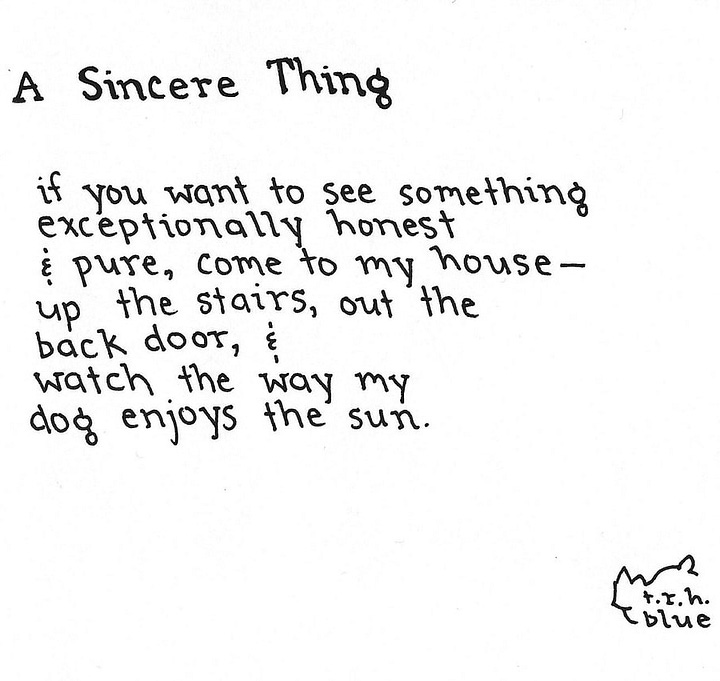 A Sincere Thing
if you want to see something
exceptionally honest
& pure, come to my house—
up the stairs, out the
back door, &
watch the way my
dog enjoys the sun.
t.r.h.
blue